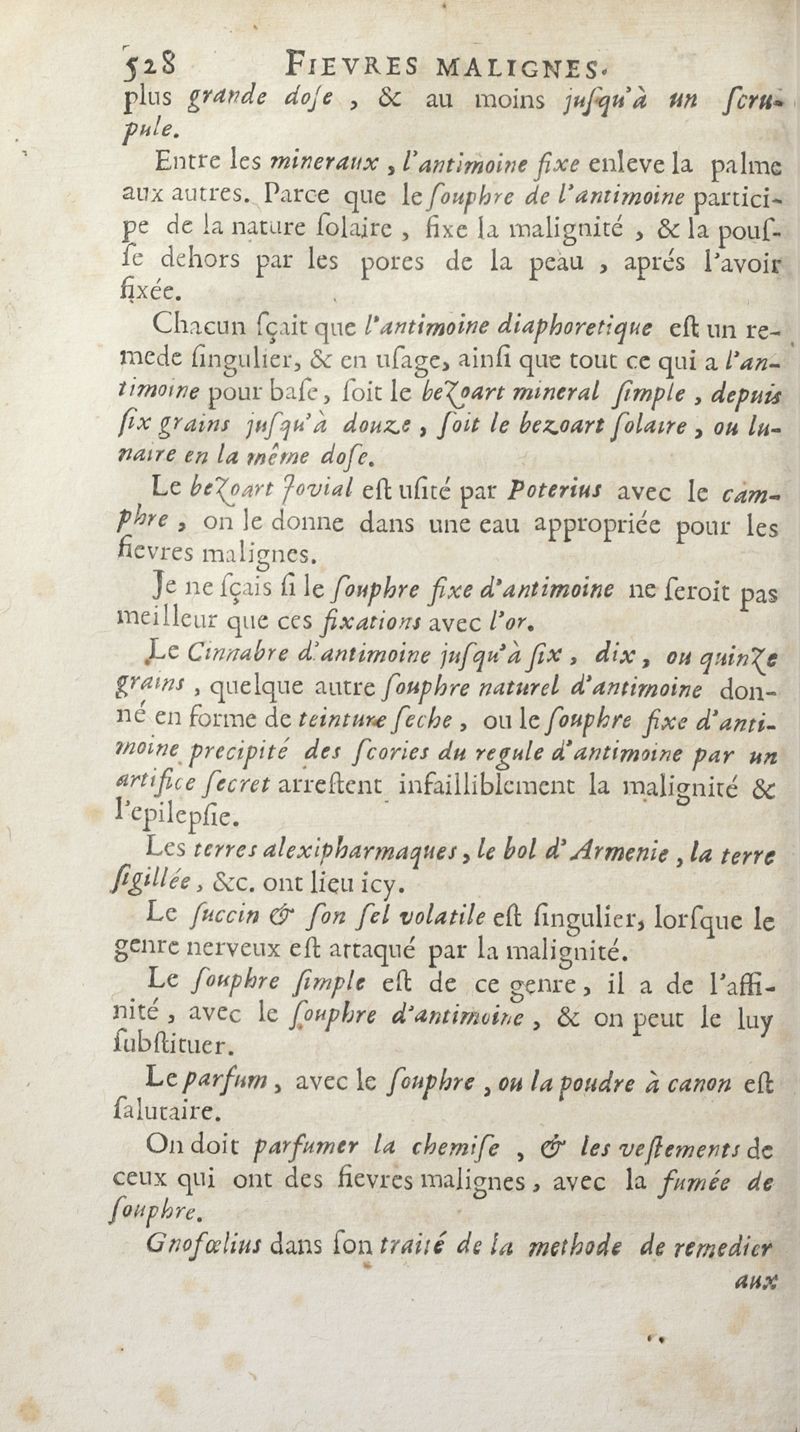 528 FIEVRES MALIGNES.
plus grande doſe , & au moins juſqu'à un ſcru-
pule.
Entre les mineraux , l'antimoine fixe enleve la palme
aux autres. Parce que le ſouphre de l'antimoine partici-
pe de la nature ſolaire , fixe la malignité , & la pouſ-
ſe dehors par les pores de la peau , aprés l'avoir
fixée.
Chacun ſçait que l'antimoine diaphoretique eſt un re-
mede ſingulier, & en uſage, ainſi que tout ce qui a l'an-
timoine pour baſe, ſoit le bezoart mineral ſimple , depuis
ſix grains juſqu'à douze , ſoit le bezoart ſolaire , ou lu-
naire en la même doſe.
Le bezoart Jovial eſt uſité par Poterius avec le cam-
phre , on le donne dans une eau appropriée pour les
fievres malignes.
Je ne ſçais ſi le ſouphre fixe d'antimoine ne ſeroit pas
meilleur que ces fixations avec l'or.
Le Cinnabre d'antimoine juſqu'à ſix , dix , ou quinze
grains , quelque autre ſouphre naturel d'antimoine don-
né en forme de teinture ſeche , ou le ſouphre fixe d'anti-
moine precipité des ſcories du regule d'antimoine par un
artifice ſecret arreſtent infailliblement la malignité &
l'epilepſie.
Les terres alexipharmaques , le bol d'Armenie , la terre
ſigillée , &c. ont lieu icy.
Le ſuccin & ſon ſel volatile eſt ſingulier, lorſque le
genre nerveux eſt attaqué par la malignité.
Le ſouphre ſimple eſt de ce genre, il a de l'affi-
nité , avec le ſouphre d'antimoine , & on peut le luy
ſubſtituer.
Le parfum , avec le ſouphre , ou la poudre à canon eſt
ſalutaire.
On doit parfumer la chemiſe , & les veſtements de
ceux qui ont des fievres malignes , avec la fumée de
ſouphre.
Gnofœlius dans ſon traité de la methode de remedier
aux